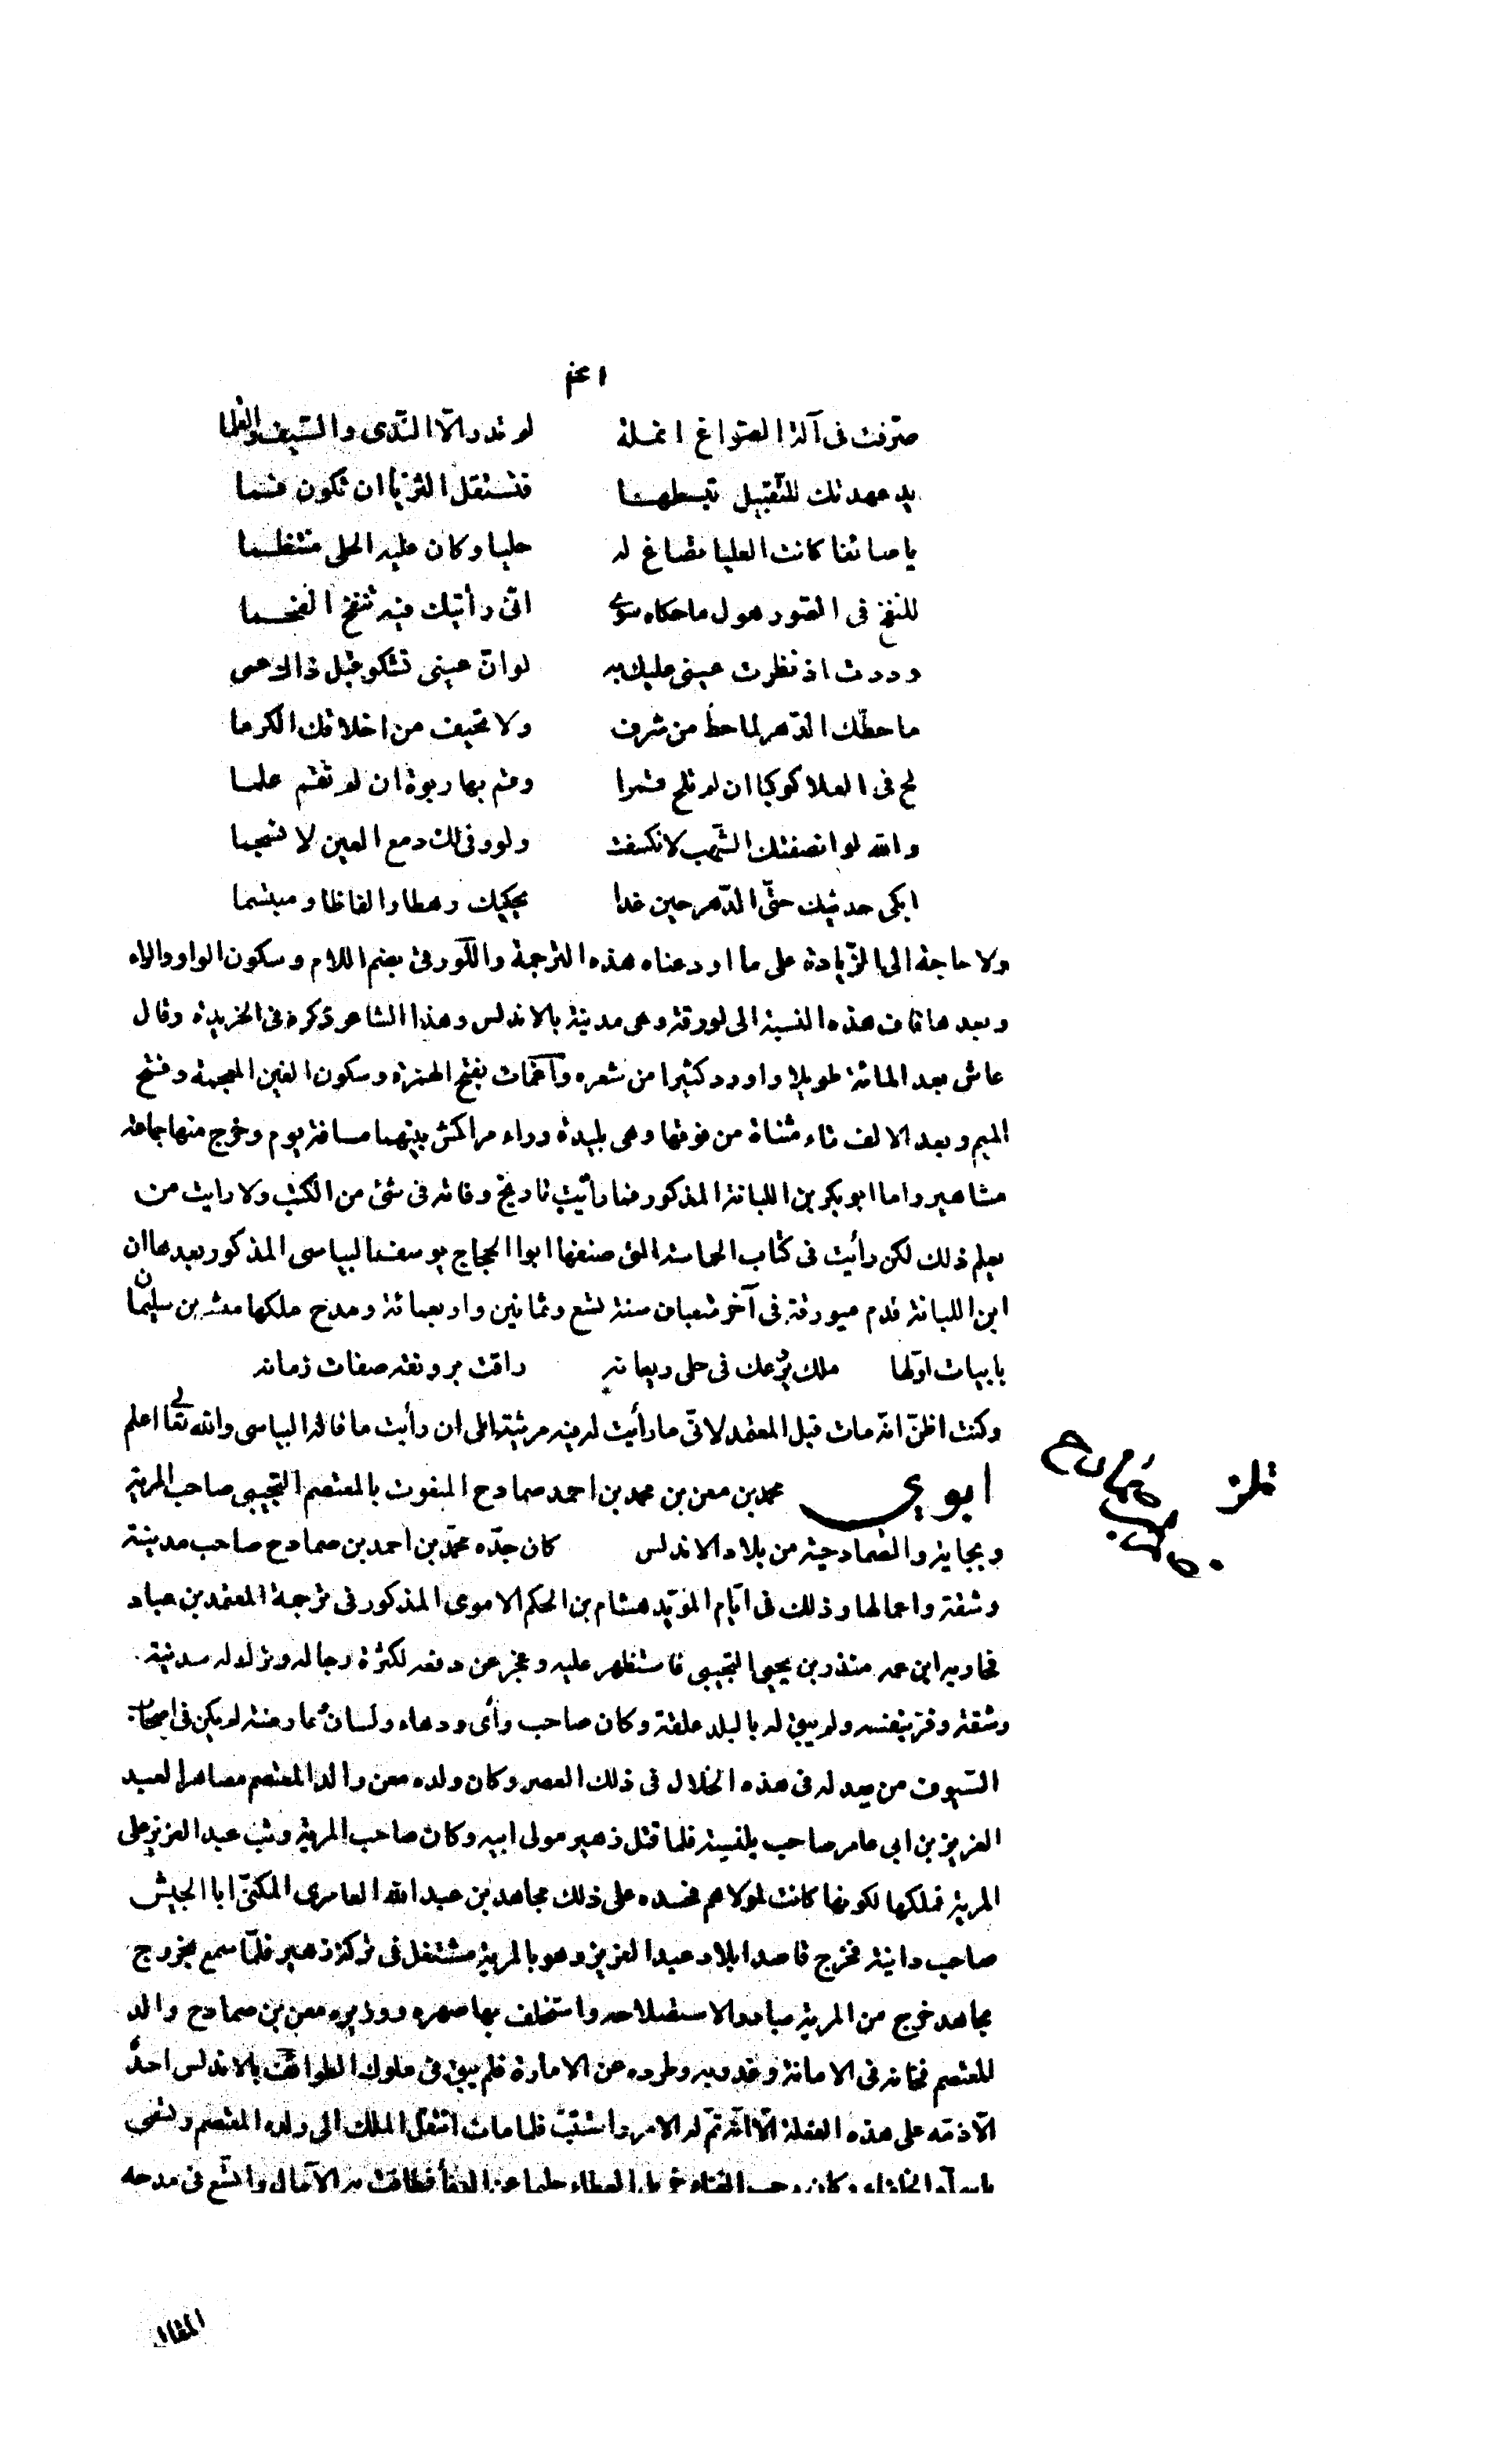 صرّفت فى آلة الصوّاغ انملة لم تدر الّا النّدى والسّيف والقلما
يد عهدتك للتّقبيل تبسطهـا فتستقل الثريّا ان تكون فـما
يا صائغا كانت العليا تصاغ له حليا وكان عليه الحلى منتظـما
للنفخ فى الصّور هول ما حكاه سوى انّى رأيتك فيه تنفخ الفحـما
وددت اذ نظرت عينى عليك به لو انّ عينى تشكو قبل ذاك عمى
ما حطّك الدّهر لما حطّ من شرف ولا تحيف من اخلاقك الكرما
لح فى العلا كوكبا ان لم تلح قمرا وقم بها ربوة ان لم تقم علمـا
والله لو انصفتك الشّهب لانكسفت ولو وفى لك دمع العين لا نسجما
ابكى حديثك حتّى الدّهر حين غدا يحكيك رهطا والفاظا ومبتسما
ولا حاجة الى الزّيادة على ما اودعناه هذه الترجمة واللّورقى بضم اللام وسكون الواو والراء
وبعدها قاف هذه النسبة الى لورقة وهى مدينة بالاندلس وهذا الشاعر ذكره فى الخريدة وقال
عاش بعد المائة طويلا واورد كثيرا من شعره وآغمات بفتح الهمزة وسكون الغين المعجمة وفتح
الميم وبعد الالف تاء مثناة من فوقها وهى بليدة وراء مراكش بينهما مسافة يوم وخرج منها جماعة
مشاهير واما ابو بكر بن اللبانة المذكور فما رأيت تاريخ وفاته فى شئ من الكتب ولا رايت من
يعلم ذلك لكن رأيت فى كتاب الحماسة التى صنفها ابوا الحجاج يوسف البياسى المذكور بعدها ان
ابن اللبانة قدم ميورقة فى آخر شعبان سنة تسع وثمانين واربعمائة ومدح ملكها مبشر بن سليمان
بابيات اوّلها ملك يروعك فى حلى ريعانه راقت برونقه صفات زمانه
وكنت اظنّ انّه مات قبل المعتمد لانّى ما رأيت له فيه مرثية الى ان رأيت ما قاله البياسى والله تعالى اعلم
ابو ى محمد بن معن بن محمد بن احمد صمادح المنعوت بالمعتصم التجيبى صاحب المرية
وبجاية والصّمادحية من بلاد الاندلس كان جدّه محمّد بن احمد بن صمادح صاحب مدينة
وشقة واعمالها وذلك فى ايّام المؤيّد هشام بن الحكم الاموى المذكور فى ترجمة المعتمد بن عباد
فحاربه ابن عمه منذر بن يحيى التجيبى فاستظهر عليه وعجز عن دفعه لكثرة رجاله وترك له مدينة
وشقة وفرّ بنفسه ولم يبق له بالبلد علقة وكان صاحب رأى ودهاء ولسان وعارضة لم يكن فى اصحاب
السّيوف من يعدله فى هذه الخلال فى ذلك العصر وكان ولده معن والد المعتصم مصاهرا لعبد
العزيز بن ابى عامر صاحب بلنسية فلما قتل زهير مولى ابيه وكان صاحب المرية وثب عبد العزيز على
المرية فملكها لكونها كانت لمولاهم فحسده على ذلك مجاهد بن عبد الله العامرى المكنّى ابا الجيش
صاحب دانية فخرج قاصدا بلاد عبد العزيز وهو بالمرية مشتغل فى تركة زهير فلمّا سمع بخروج
مجاهد خرج من المرية مبادرا لاستصلاحه واستخلف بها صهره ووزيره معن بن صمادح والد
المعتصم فخانه فى الامانة وغدر به وطرده عن الامارة فلم يبق فى ملوك الطوائف بالاندلس احد
الّا ذمّه على هذه الفعلة الّا انّه تمّ له الامر واستتبّ فلما مات انتقل الملك الى ولده المعتصم وتسمى
باسماء الخلفاء وكان رحب الفناء جزيل العطاء حليما عن الدماء فطافت به الآمال واتّسع فى مدحه
المقال